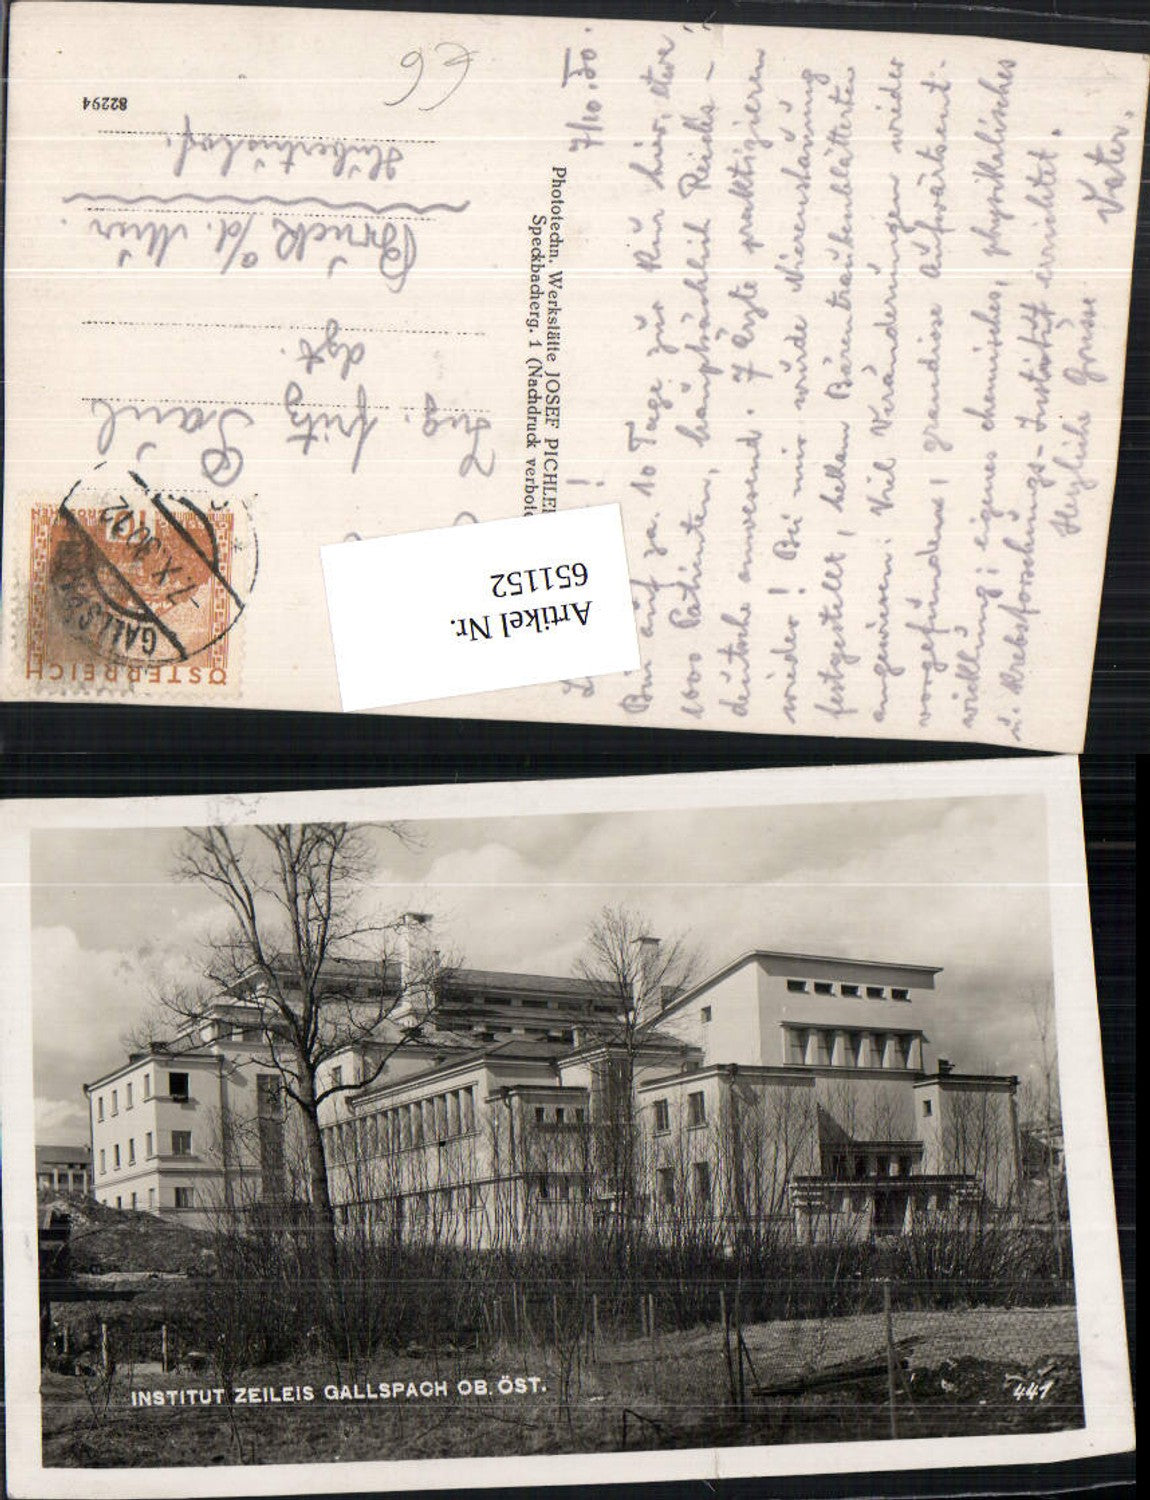 7/10.30.
Bin auf ca. 10 Tage zur Kur hier, etwa
1000 Patienten, hauptsächlich Reichs-
deutsche anwesend. 7 Ärzte praktizieren
wieder! Bei mir wurde Nierenstauung
festgestellt, bekam Bärentraubenblättertee
angewiesen. Viel Veränderungen wieder
vorgefunden, grandiose Aufwärtsent-
wicklung; eigenes chemisches, physikalisches
u. Krebsforschungs-Institut errichtet.
Herzliche Grüsse
Vater.
Phototechn. Werkstätte JOSEF PICHLE
Speckbacherg. 1 (Nachdruck verbot
ÖSTERREICH
10
GROSCHEN
GALLSPACH
-7.X.30 12
Ing. Fritz Paul
dzt.
Bruck a/d. Mur.
Hubertushof.
82294
€6
Artikel Nr.
651152
INSTITUT ZEILEIS GALLSPACH OB. ÖST.
441